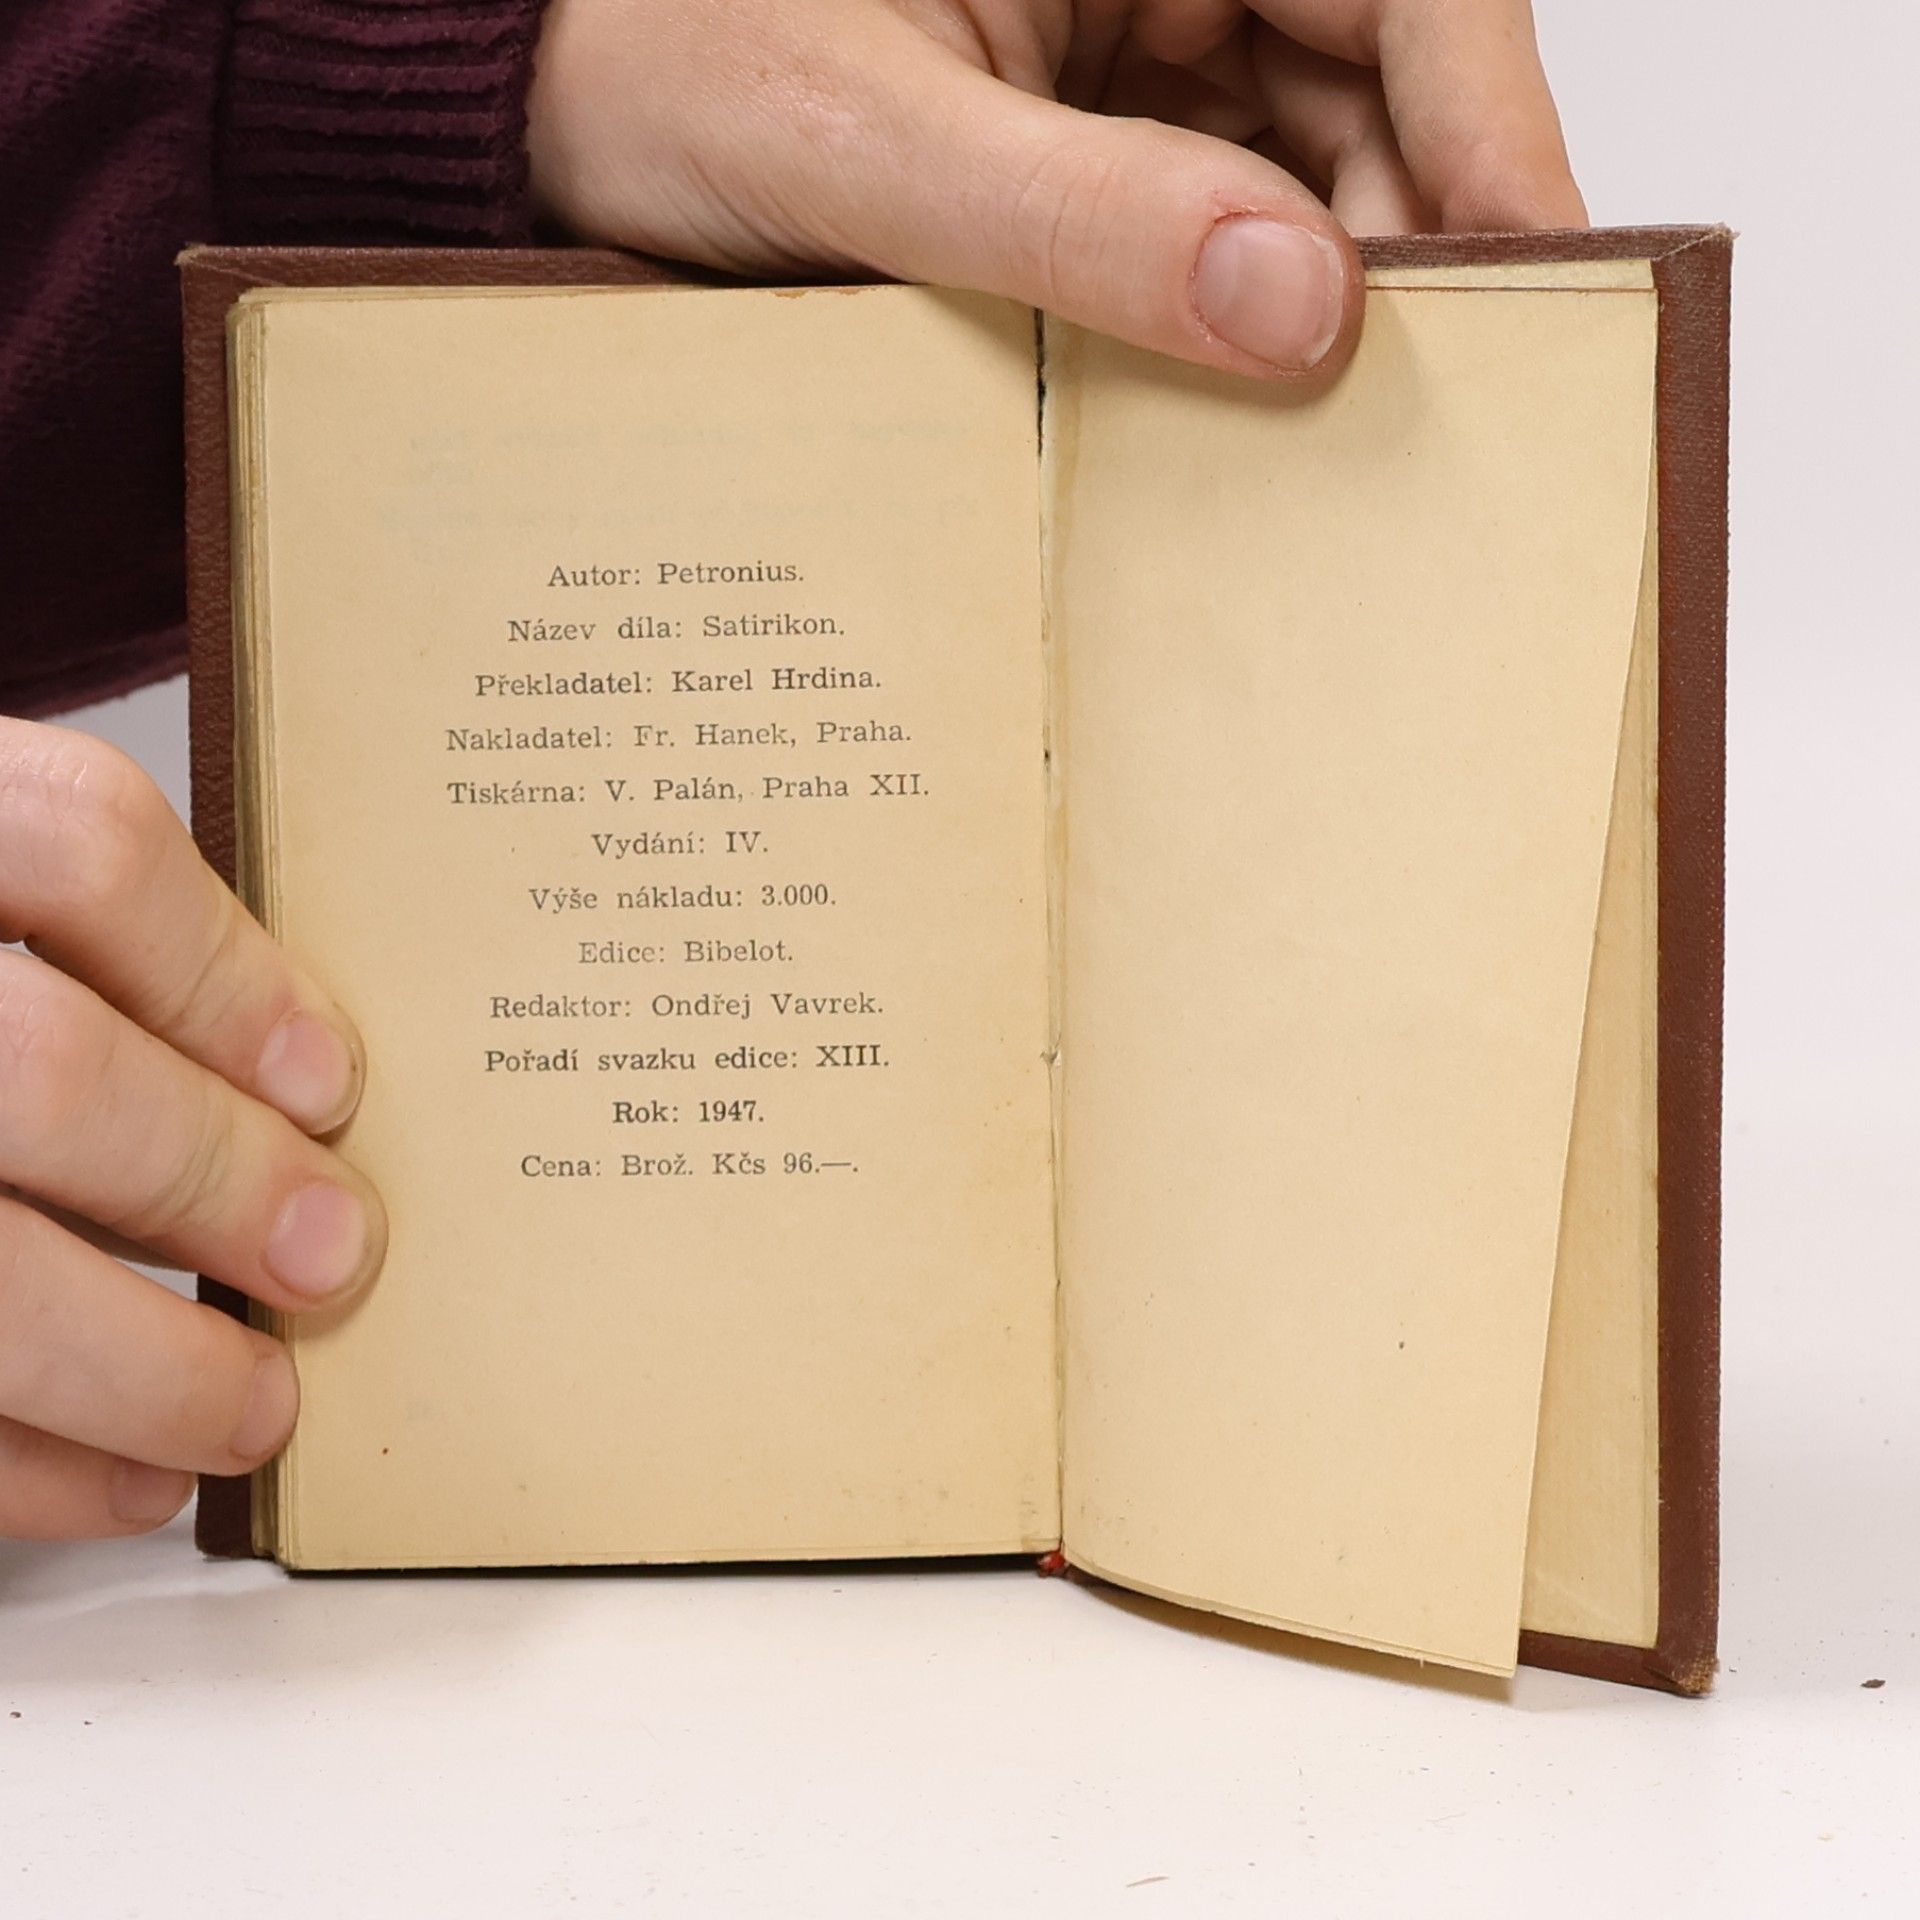 Autor: Petronius.
Název díla: Satirikon.
Překladatel: Karel Hrdina.
Nakladatel: Fr. Hanek, Praha.
Tiskárna: V. Palán, Praha XII.
Vydání: IV.
Výše nákladu: 3.000.
Edice: Bibelot.
Redaktor: Ondřej Vavrek.
Pořadí svazku edice: XIII.
Rok: 1947.
Cena: Brož. Kčs 96.—.